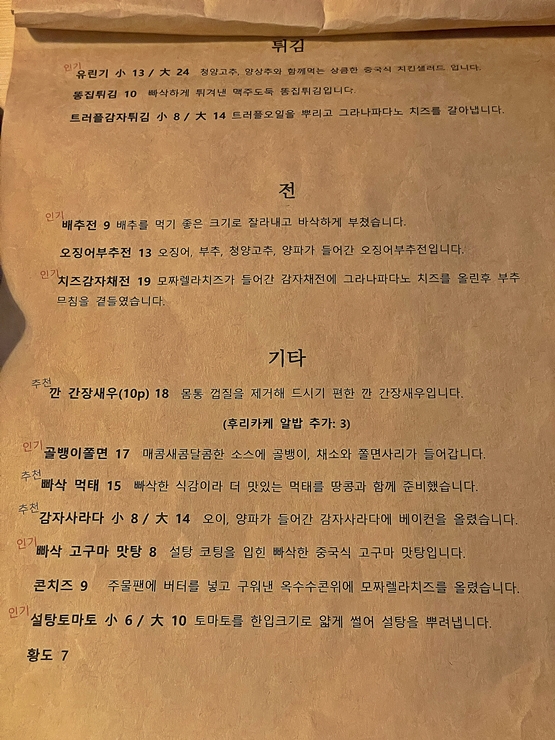 튀김
인기 유린기 小 13 / 大 24 청양고추, 양상추와 함께먹는 상큼한 중국식 치킨샐러드 입니다.
똥집튀김 10 빠삭하게 튀겨낸 맥주도둑 똥집튀김입니다.
트러플감자튀김 小 8 / 大 14 트러플오일을 뿌리고 그라나파다노 치즈를 갈아냅니다.
전
인기 배추전 9 배추를 먹기 좋은 크기로 잘라내고 바삭하게 부쳤습니다.
오징어부추전 13 오징어, 부추, 청양고추, 양파가 들어간 오징어부추전입니다.
인기 치즈감자채전 19 모짜렐라치즈가 들어간 감자채전에 그라나파다노 치즈를 올린후 부추
무침을 곁들였습니다.
기타
추천 깐 간장새우(10p) 18 몸통 껍질을 제거해 드시기 편한 깐 간장새우입니다.
(후리카케 알밥 추가: 3)
인기 골뱅이쫄면 17 매콤새콤달콤한 소스에 골뱅이, 채소와 쫄면사리가 들어갑니다.
추천 빠삭 먹태 15 빠삭한 식감이라 더 맛있는 먹태를 땅콩과 함께 준비했습니다.
추천 감자사라다 小 8 / 大 14 오이, 양파가 들어간 감자사라다에 베이컨을 올렸습니다.
인기 빠삭 고구마 맛탕 8 설탕 코팅을 입힌 빠삭한 중국식 고구마 맛탕입니다.
콘치즈 9 주물팬에 버터를 넣고 구워낸 옥수수콘위에 모짜렐라치즈를 올렸습니다.
인기 설탕토마토 小 6 / 大 10 토마토를 한입크기로 얇게 썰어 설탕을 뿌려냅니다.
황도 7